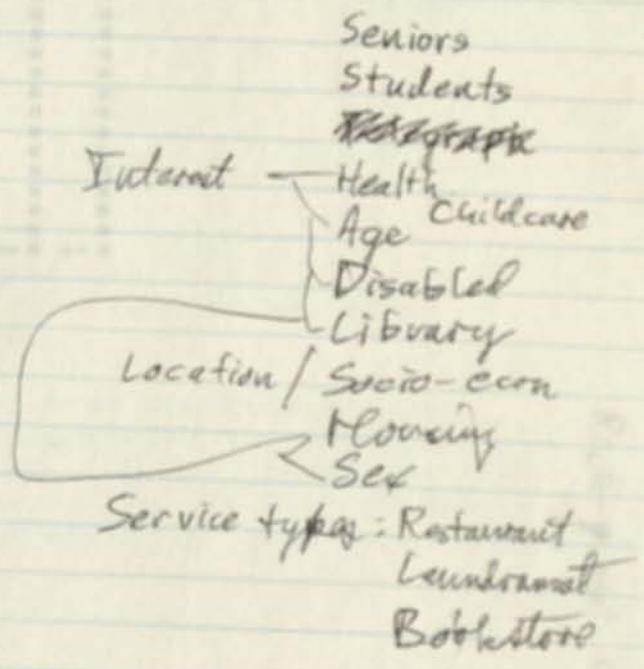 Seniors
Students
Interest Health
Childcare
Age
Disabled
Library
Location / Socio-econ
Housing
Sex
Service types: Restaurant
Laundramat
Bookstore